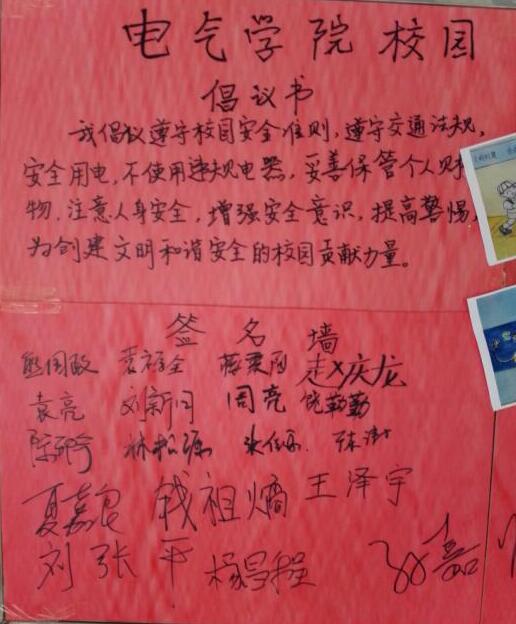 电气学院校园
倡议书
我倡议遵守校园安全准则，遵守交通法规，
安全用电，不使用违规电器，妥善保管个人财
物，注意人身安全，增强安全意识，提高警惕，
为创建文明和谐安全的校园贡献力量。
签名墙
熊国政 袁裕全 赵庆龙
袁亮 刘新月 周亮 饶勤勤
林松源
夏嘉良 钱祖熵 王泽宇
刘张平 杨昌程